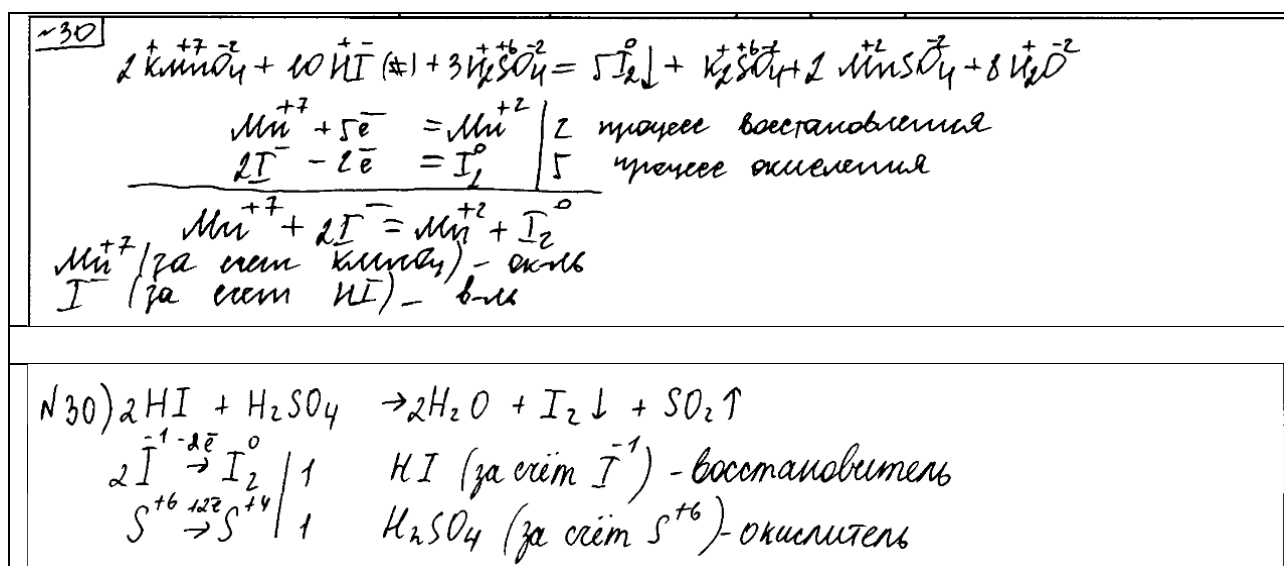 №30
2 K⁺Mn⁺⁷O₄⁻² + 10 H⁺I⁻ (ж) + 3 H₂⁺S⁺⁶O₄⁻² = 5 I₂⁰↓ + K₂⁺S⁺⁶O₄⁻² + 2 Mn⁺²SO₄⁻² + 8 H₂⁺O⁻²
Mn⁺⁷ + 5ē = Mn⁺² | 2 процесс восстановления
2I⁻ - 2ē = I₂⁰ | 5 процесс окисления
Mn⁺⁷ + 2I⁻ = Mn⁺² + I₂⁰
Mn⁺⁷ (за счет KMnO₄) – ок-ль
I⁻ (за счет HI) – в-ль
№30) 2HI + H₂SO₄ → 2H₂O + I₂↓ + SO₂↑
2I⁻¹ -2ē → I₂⁰ | 1 HI (за счёт I⁻¹) - восстановитель
S⁺⁶ +2ē → S⁺⁴ | 1 H₂SO₄ (за счёт S⁺⁶) - окислитель